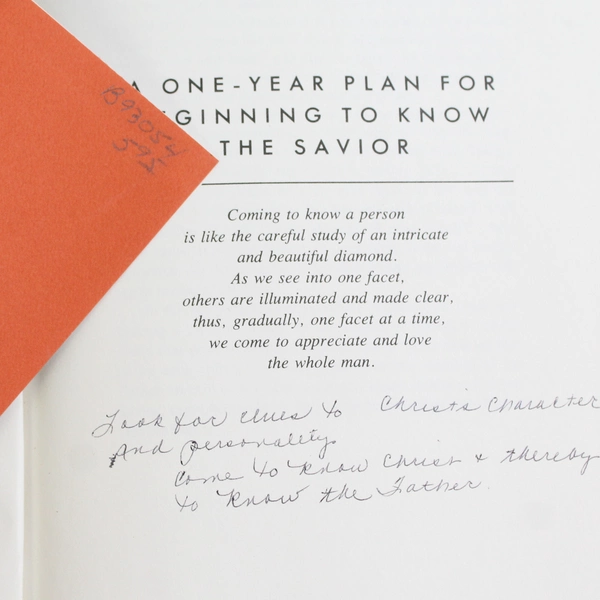 A ONE-YEAR PLAN FOR
GINNING TO KNOW
THE SAVIOR
Coming to know a person
is like the careful study of an intricate
and beautiful diamond.
As we see into one facet,
others are illuminated and made clear,
thus, gradually, one facet at a time,
we come to appreciate and love
the whole man.
Look for clues to Christ's Character
And personality
Come to know Christ & thereby
to know the Father.
B93054
595